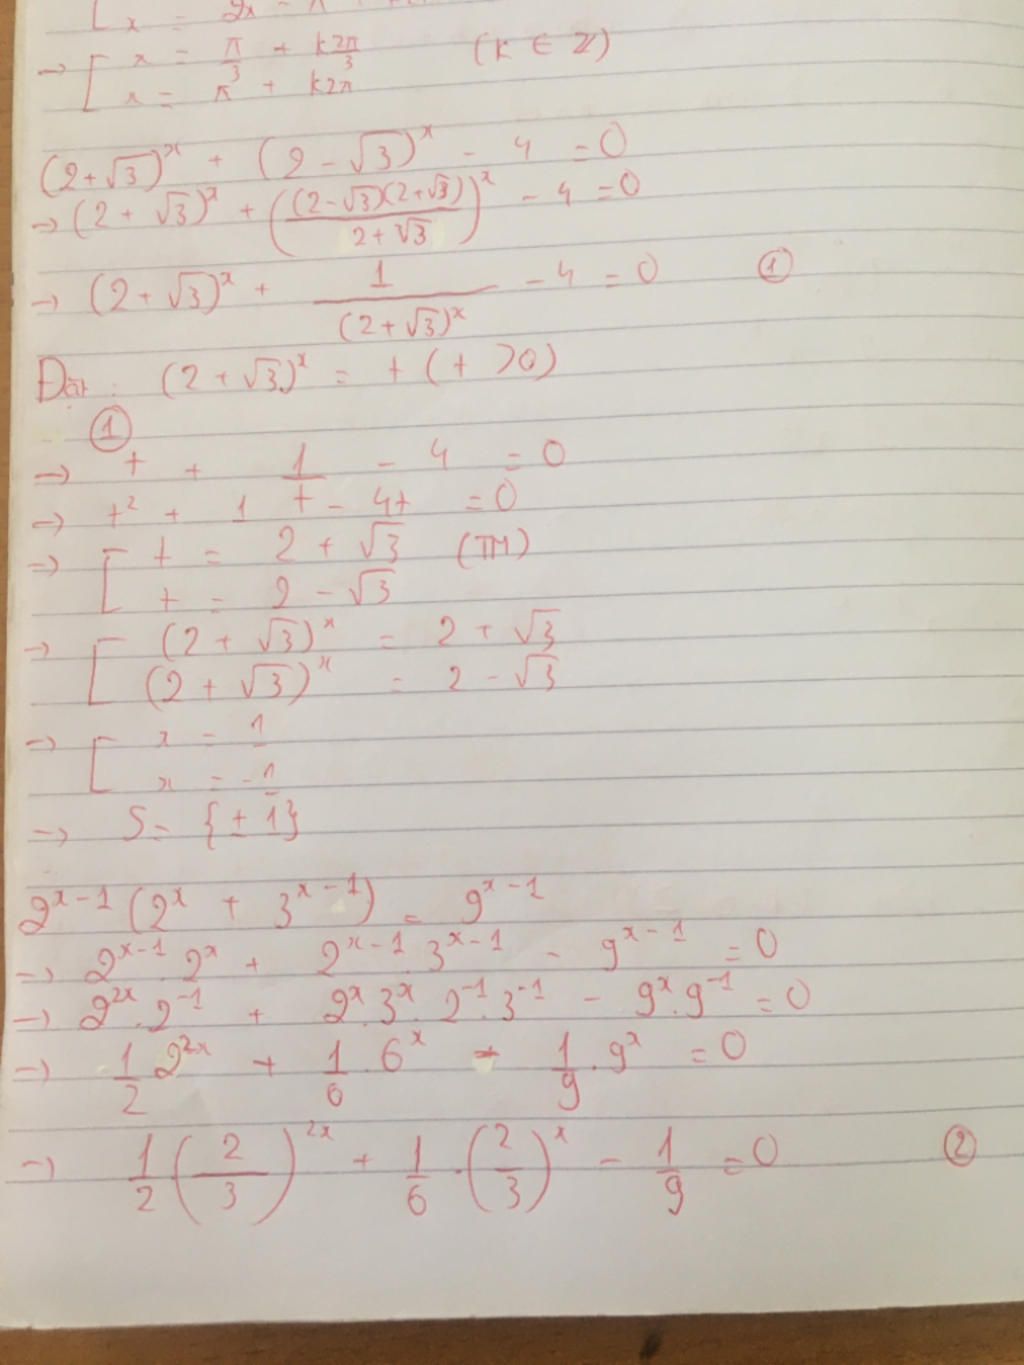 [ x = 2x - π
→ [ x = π/3 + k2π/3 (k ∈ Z)
x = π + k2π
(2+√3)^x + (2-√3)^x - 4 = 0
→ (2+√3)^x + ((2-√3)(2+√3)/2+√3)^x - 4 = 0
→ (2+√3)^x + 1/(2+√3)^x - 4 = 0 ①
Đặt: (2+√3)^x = t (t >0)
①
→ t + 1/t - 4 = 0
→ t² + 1 - 4t = 0
→ [ t = 2 + √3 (TM)
t = 2 - √3
→ [ (2+√3)^x = 2 + √3
(2+√3)^x = 2 - √3
→ [ x = 1
x = -1
→ S = {± 1}
2^x-1 (2^x + 3^x-1) = 9^x-1
→ 2^x-1 . 2^x + 2^x-1 . 3^x-1 - 9^x-1 = 0
→ 2^2x . 2^-1 + 2^x . 3^x . 2^-1 . 3^-1 - 9^x . 9^-1 = 0
→ 1/2 2^2x + 1/6 . 6^x - 1/9 . 9^x = 0
→ 1/2 (2/3)^2x + 1/6 . (2/3)^x - 1/9 = 0 ②